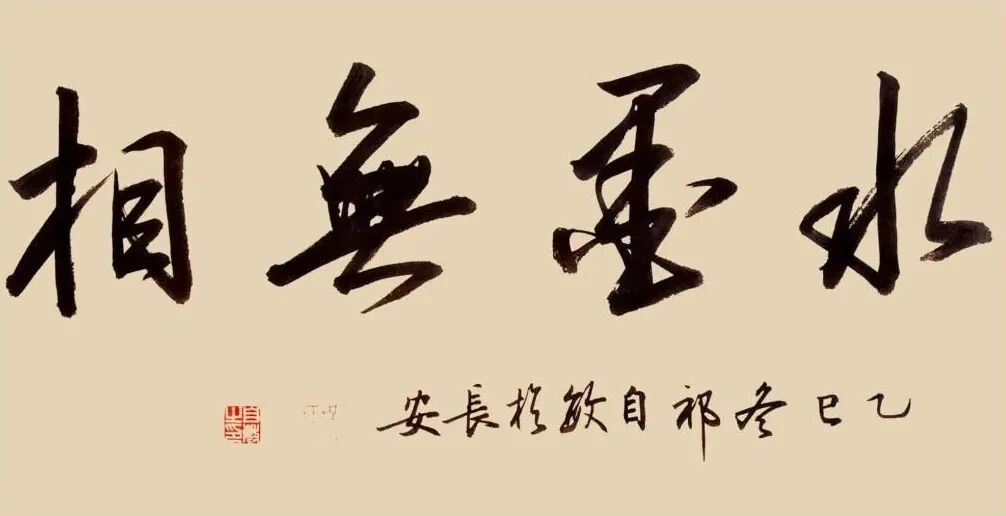 水墨無相
乙巳冬祁自敏於長安